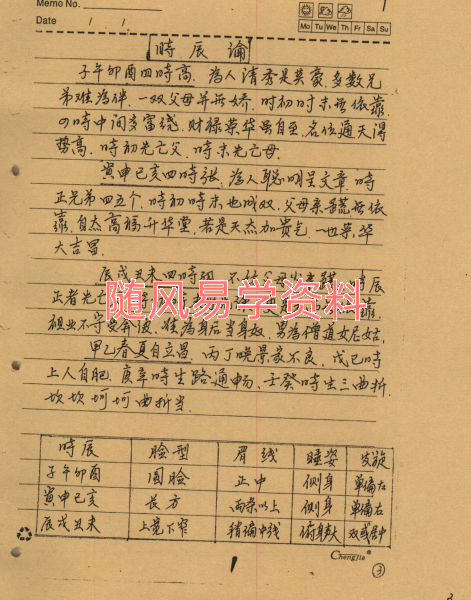 Memo No.
Date / /
Mo Tu We Th Fr Sa Su
時辰論
子午卯酉四時高.為人清秀是英豪.多数兄
弟难為伴.一双父母并無娇.时初时末無依靠.
の時中间多富绕.财禄荣华虽自至.名位通天得
势高.時初先亡父.時末先亡母.
寅申巳亥四時張.為人聪明呈文章.時
正兄弟四五个.時初時末也成双.父母亲無依
靠.自杰高福升华堂.若是天杰加贵气.一世荣华
大吉昌.
辰戌丑未四時
正者先亡
随风易学资料
祖业不守要奔波.难為身后当身奴.男為僧道女尼姑.
甲乙春夏自立昌.丙丁晚景衣不良.戊己时
上人自肥.庚辛時生路通畅.壬癸時生三曲折.
坎坎坷坷曲折当.
時辰 脸型 眉线 睡姿 发旋
子午卯酉 圆脸 正中 侧身 单偏左
寅申巳亥 长方 两条以上 侧身 单偏右
辰戌丑未 上宽下窄 稍偏中线 俯身 双或居中
Chengjia
1
③